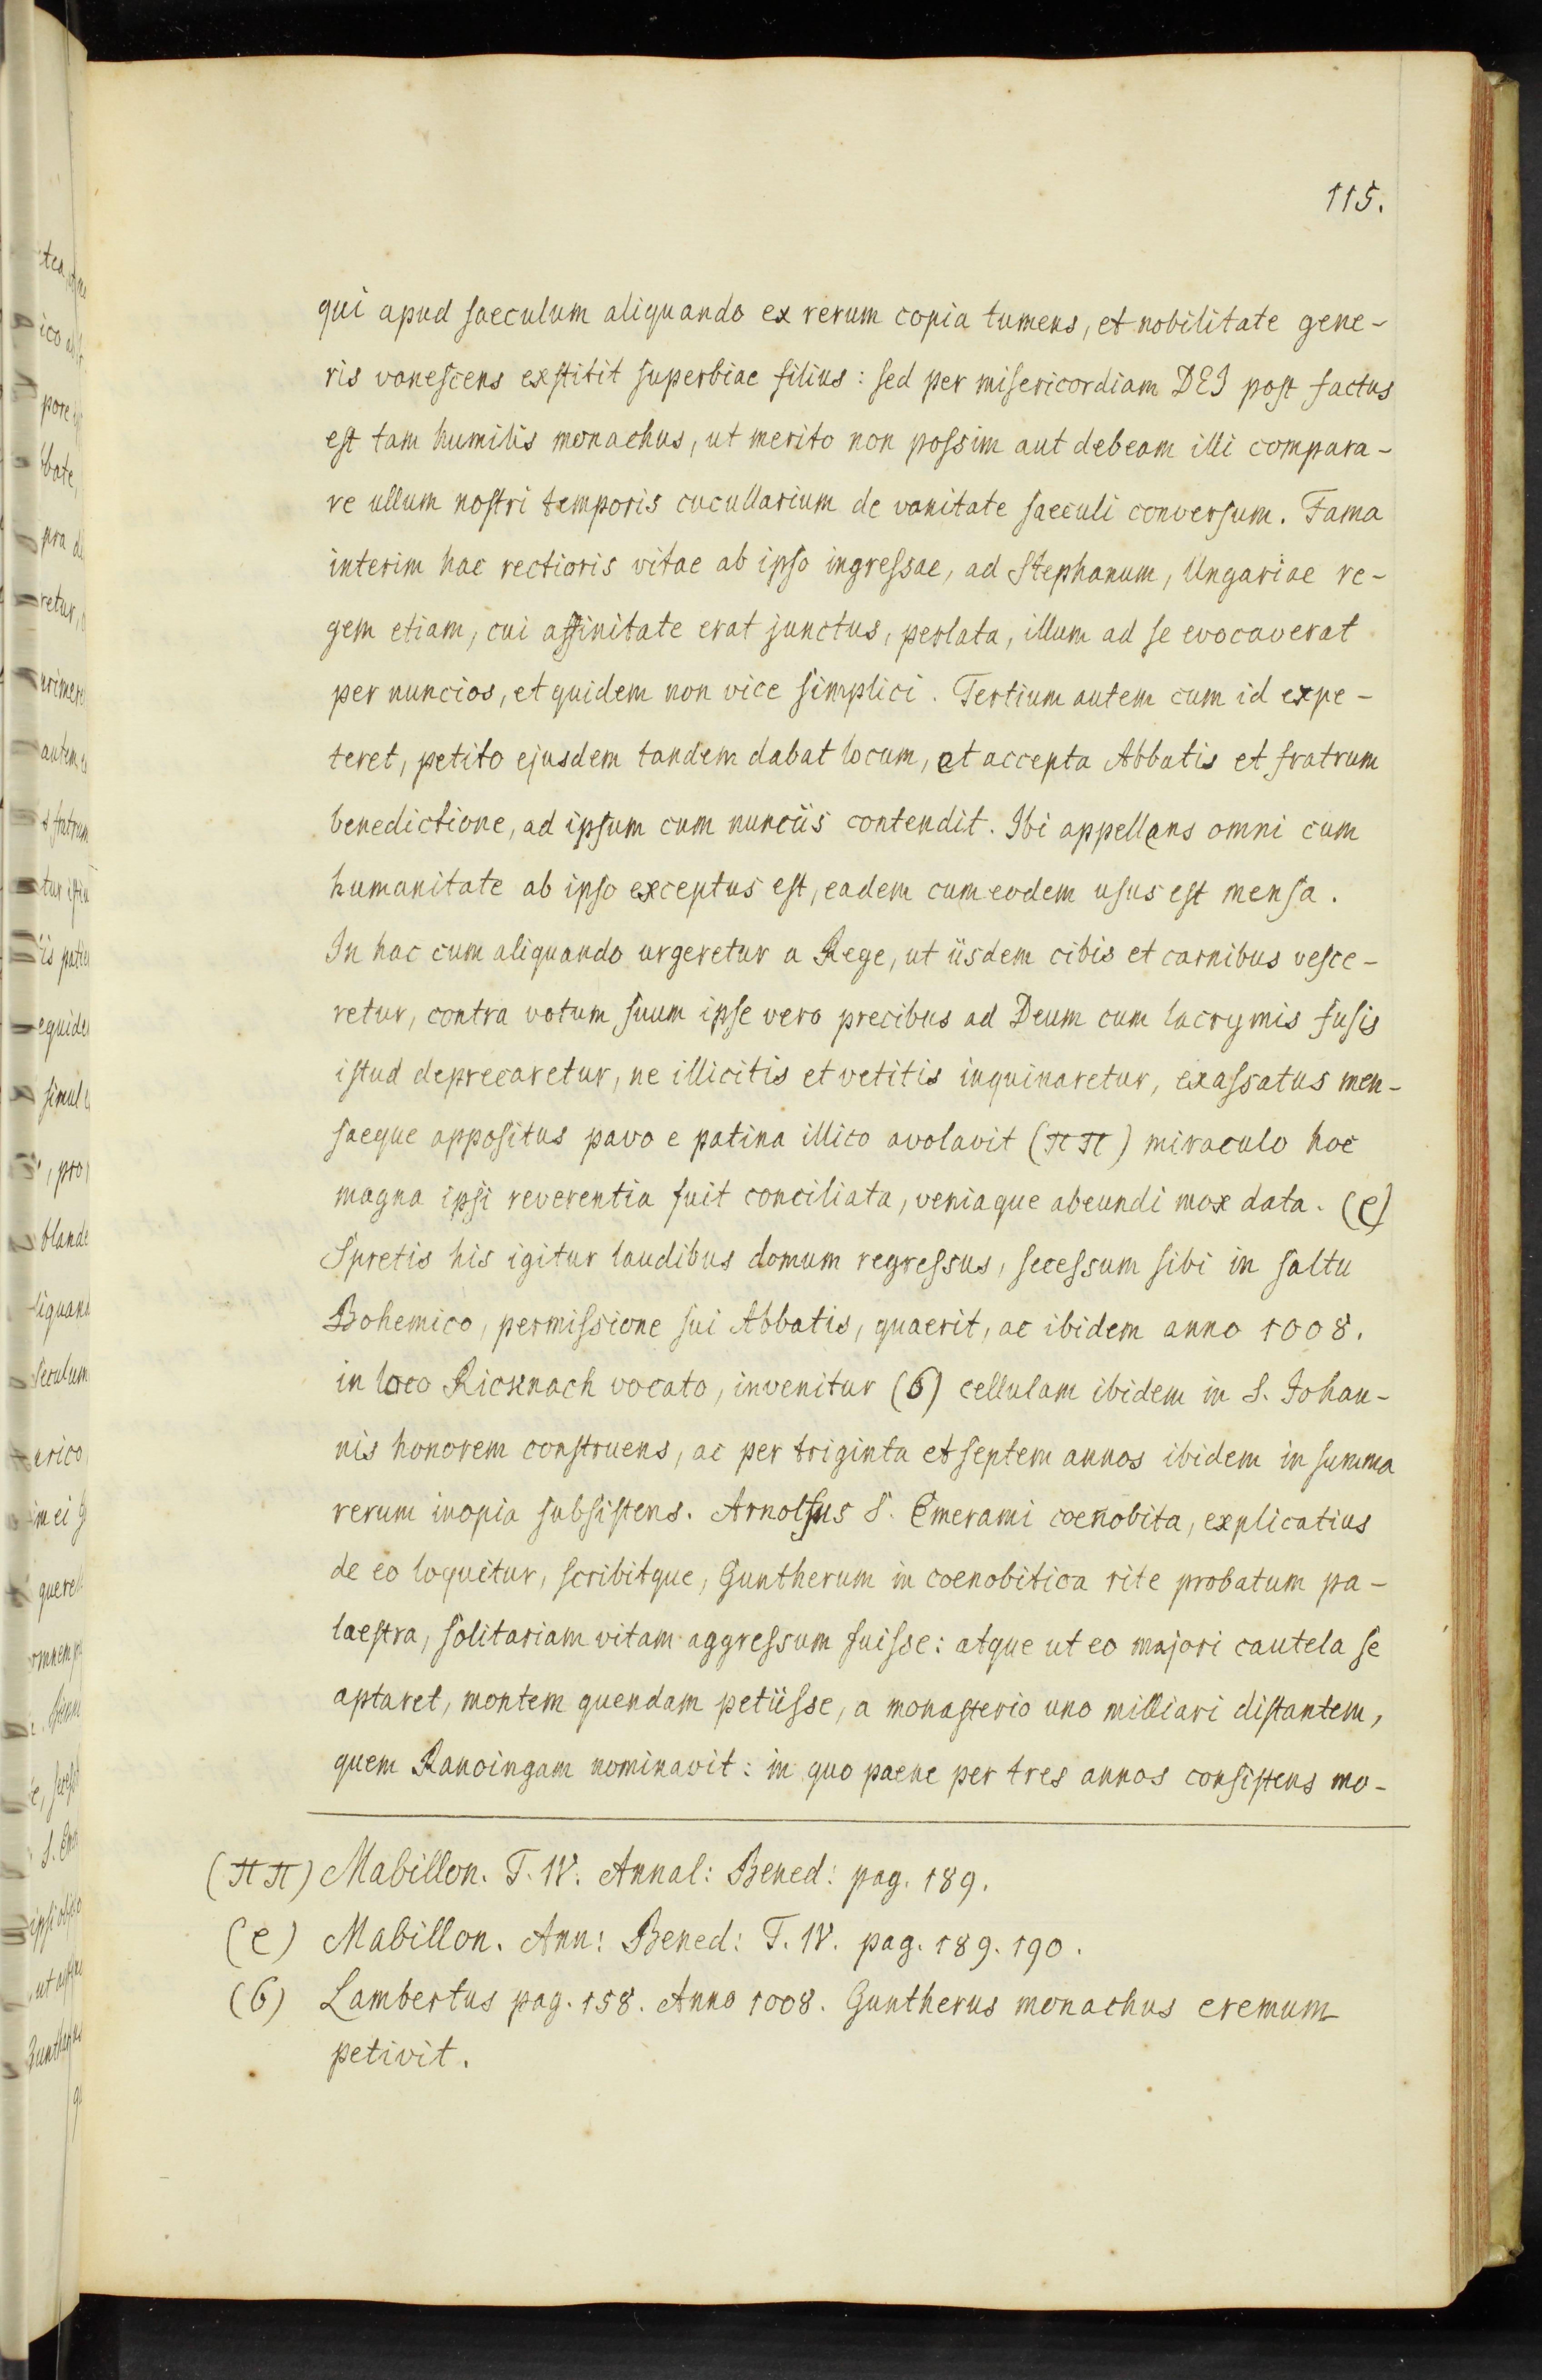 115.
qui apud saeculum aliquando ex rerum copia tumens, et nobilitate gene-
ris vanescens exstitit superbiae filius: sed per misericordiam DEI post factus
est tam humilis monachus, ut merito non possim aut debeam illi compara-
re ullum nostri temporis cucullarium de vanitate saeculi conversum. Fama
interim hac rectioris vitae ab ipso ingressae, ad Stephanum, Ungariae re-
gem etiam, cui affinitate erat junctus, perlata, illum ad se evocaverat
per nuncios, et quidem non vice simplici. Tertium autem cum id expe-
teret, petito ejusdem tandem dabat locum, et accepta Abbatis et fratrum
benedictione, ad ipsum cum nunciis contendit. Ibi appellens omni cum
humanitate ab ipso exceptus est, eadem cum eodem usus est mensa.
In hac cum aliquando urgeretur a Rege, ut iisdem cibis et carnibus vesce-
retur, contra votum suum ipse vero precibus ad Deum cum lacrymis fusis
istud deprecaretur, ne illicitis et vetitis inquinaretur, exassatus men-
saeque appositus pavo e patina illico avolavit (π π) miraculo hoc
magna ipsi reverentia fuit conciliata, veniaque abeundi mox data. (e)
Spretis his igitur laudibus domum regressus, secessum sibi in saltu
Bohemico, permissione sui Abbatis, quaerit, ac ibidem anno 1008.
in loco Ricknach vocato, invenitur (6) cellulam ibidem in S. Johan-
nis honorem construens, ac per triginta et septem annos ibidem in summa
rerum inopia subsistens. Arnolfus S. Emerami coenobita, explicatius
de eo loquitur, scribitque, Guntherum in coenobitica rite probatum pa-
laestra, solitariam vitam aggressum fuisse: atque ut eo majori cautela se
aptaret, montem quendam petiisse, a monasterio uno milliari distantem,
quem Ranoingam nominavit: in quo paene per tres annos consistens mo-
(π π) Mabillon. T. IV. Annal: Bened: pag. 189.
(e) Mabillon. Ann: Bened: T. IV. pag. 189. 190.
(6) Lambertus pag. 158. Anno 1008. Guntherus monachus eremum
petivit.